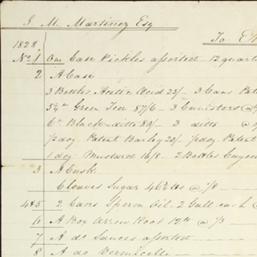 J. M. Martinez Esq
To E
1828
No. 1 One Case Pickles assorted - 12 quart
2 A Case
3 Bottles Acid 25/- 3 Cans Pat
Green Tea 87/6 - 3 Cannisters @
6 lb Black ditto - 3 ditto @
½ doz. Patent Barley 20/- ½ doz. Patent
1 doz Mustard 16/8 - 2 Bottles Cayen
3 A Cask
6 Loaves Sugar 46 lbs @
4 & 5 2 Cans Sperm Oil. 2 Gall each
6 A Box Arrow Root 12 lb @
7 A do Sauces assorted
8 A do Vermicelli